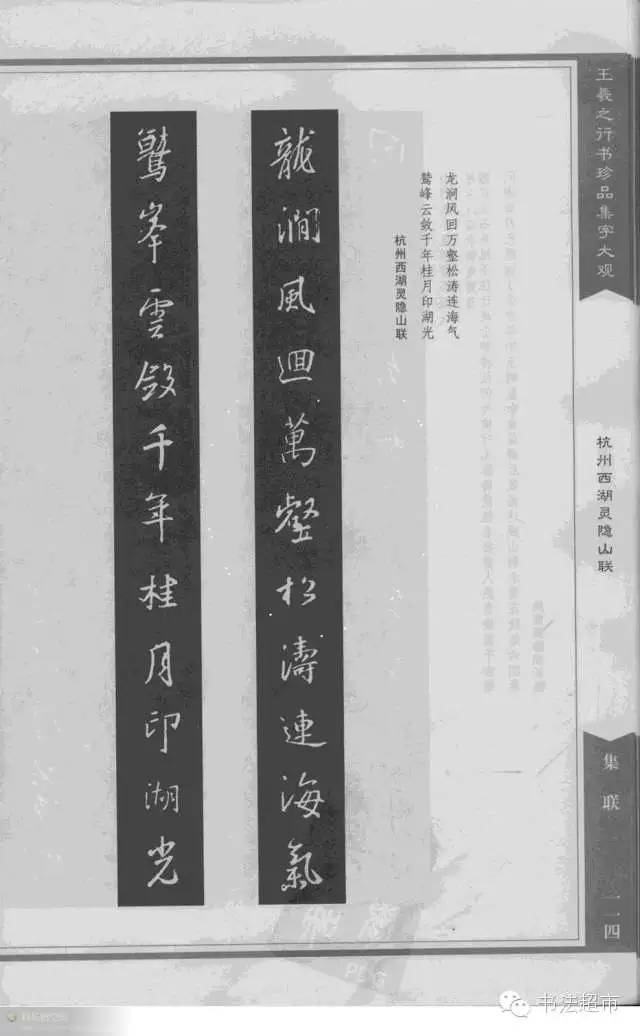 王羲之行书珍品集字大观
杭州西湖灵隐山联
集联
一一四
龙涧风回万壑松涛连海气
鹫峰云敛千年桂月印湖光
杭州西湖灵隐山联
龍澗風迴萬壑松濤連海氣
鷲峯雲斂千年桂月印湖光
书法超市